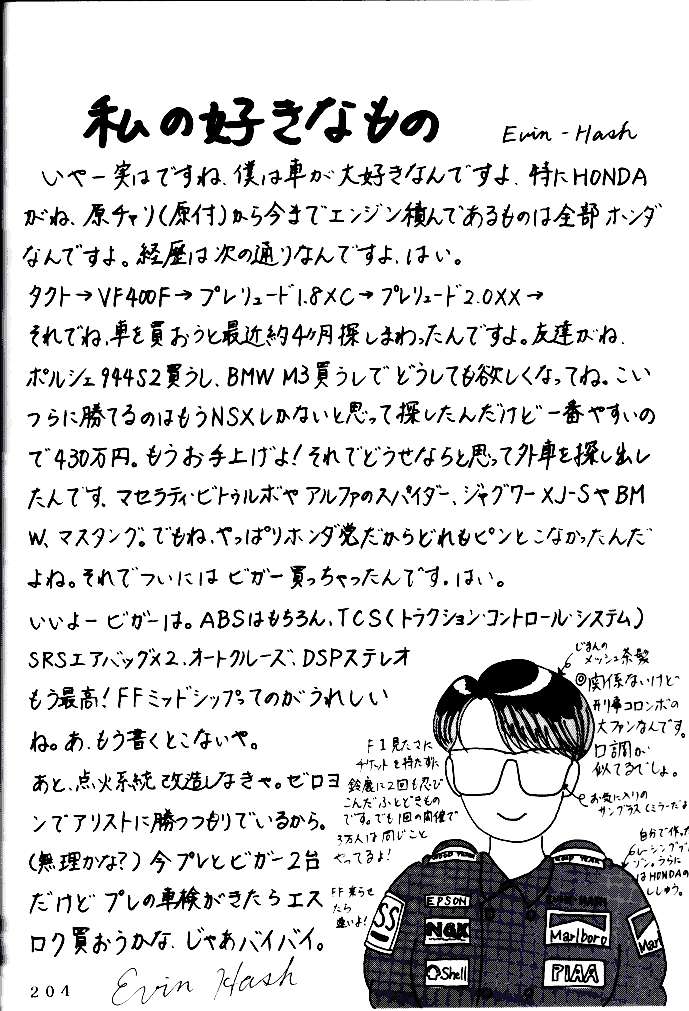 私の好きなもの
Evin-Hash
いやー実はですね、僕は車が大好きなんですよ、特にHONDA
がね、原チャリ(原付)から今までエンジン積んであるものは全部ホンダ
なんですよ。経歴は次の通りなんですよ、はい。
タクト→VF400F→プレリュード1.8XC→プレリュード2.0XX→
それでね、車を買おうと最近約4ヶ月探しまわったんですよ。友達がね、
ポルシェ944S2買うし、BMW M3買うしでどうしても欲しくなってね。こい
つらに勝てるのはもうNSXしかないと思って探したんだけど一番やすいの
で430万円。もうお手上げよ!それでどうせならと思って外車を探し出し
たんです、マセラティ・ビトゥルボやアルファのスパイダー、ジャグワーXJ-SやBM
W、マスタング。でもね、やっぱりホンダ党だからどれもピンとこなかったんだ
よね。それでついにはビガー買っちゃったんです。はい。
いいよービガーは。ABSはもちろん、TCS(トラクション・コントロール・システム)
SRSエアバッグ×2、オートクルーズ、DSPステレオ
もう最高!FFミッドシップってのがうれしい
ね。あ、もう書くとこないや。
あと、点火系統改造しなきゃ。ゼロヨ
ンでアリストに勝つつもりでいるから。
(無理かな?)今プレとビガー2台
だけどプレの車検がきたらエス
ロク買おうかな、じゃあバイバイ。
じまんの
メッシュ茶髪
◎関係ないけど
刑事コロンボの
大ファンなんです。
口調が
似てるでしょ。
お気に入りの
サングラス(ミラーだよ
F1見たさに
チケットを持たずに
鈴鹿に2回も忍び
こんだふとどきもの
です。でも1回の開催で
3万人は同じこと
やってるよ!
自分で作った
レーシングブル
ゾン。うらに
はHONDAの
ししゅう。
FF来らせ
たら
速いよ!
EPSON
NGK
Shell
SS
Marlboro
PIAA
Marl
Evin Hash
204